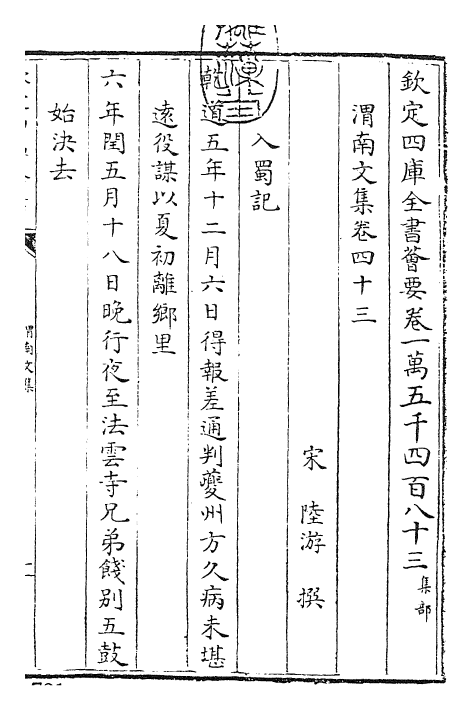 欽定四庫全書薈要卷一萬五千四百八十三集部
渭南文集卷四十三
宋 陸游 撰
入蜀記
乾道五年十二月六日得報差通判夔州方久病未堪
遠役謀以夏初離鄉里
六年閏五月十八日晚行夜至法雲寺兄弟餞別五鼓
始決去
渭南文集